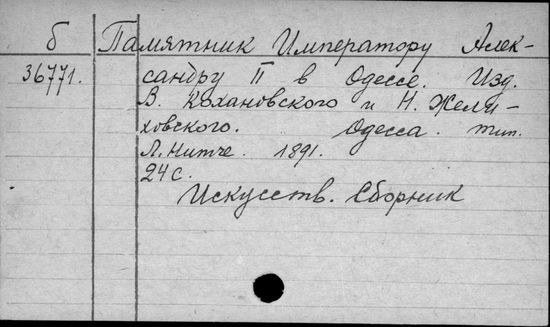 б Памятник Императору Алек-
36771. сандру II в Одессе. Изд.
В. Кохановского и Н. Желя-
ховского. Одесса. тип.
Л. Нитче. 1891.
24 с.
Искусств. Сборник